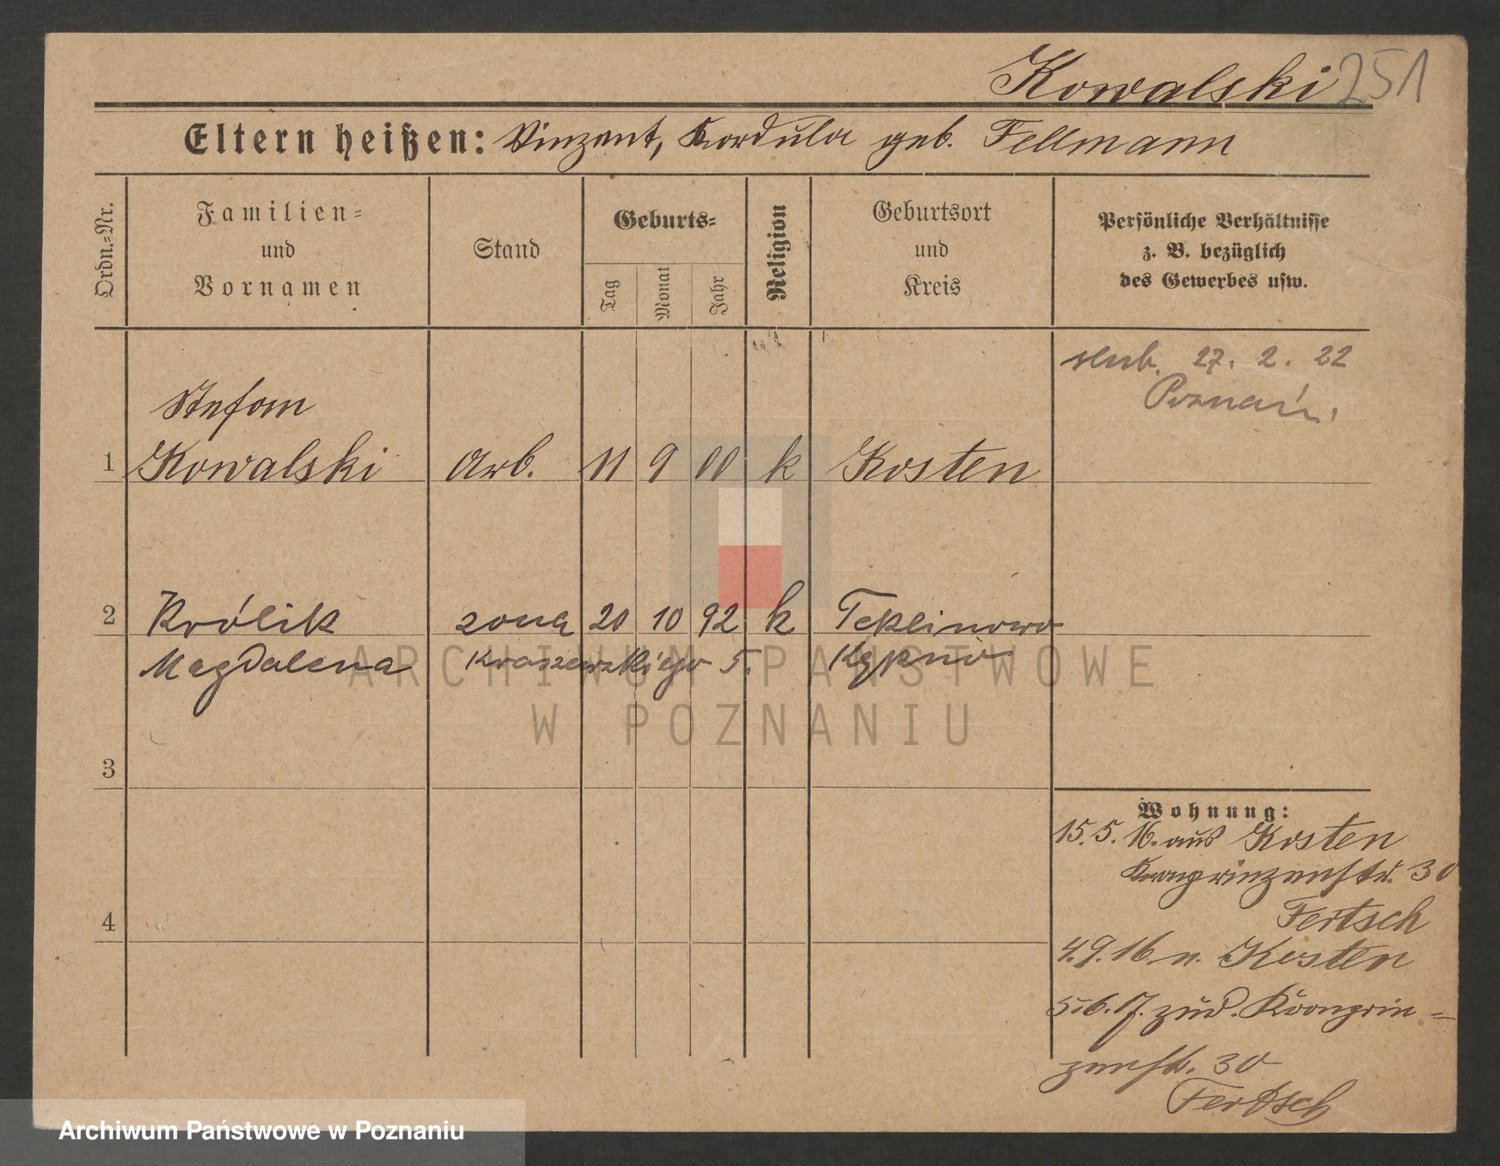 Kowalski 251
Eltern heißen: Vinzent, Kordula geb. Fellmann
Ordn.=Nr.
Familien=
und
Vornamen
Stand
Geburts=
Tag
Monat
Jahr
Religion
Geburtsort
und
Kreis
Persönliche Verhältnisse
z. B. bezüglich
des Gewerbes usw.
ślub. 27. 2. 22
Poznań.
Stefan
1 Kowalski Arb. 11 9 00 k Kosten
2 Królik żona 20 10 92 k Teklinowo
Magdalena Kraszewskiego 5. Kępno
3
4
Wohnung:
15.5.16. aus Kosten
Kronprinzenstr. 30
Fertsch
4.9.16. n. Kosten
5.6.17. zud. Kronprin=
zenstr. 30
Fertsch
ARCHIWUM PAŃSTWOWE
W POZNANIU
Archiwum Państwowe w Poznaniu